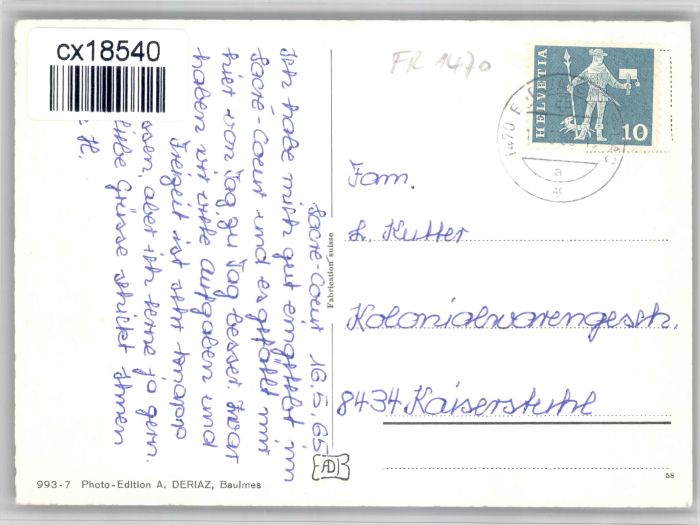 cx18540
FR 1470
HELVETIA
10
1470
a
Sacré-Coeur 16.5.65
Ich habe mich gut eingelebt im
Sacré-Coeur und es gefällt mir
hier von Tag zu Tag besser. Zwar
haben wir viele Aufgaben und
Freizeit ist sehr knapp
ssen, aber ich lerne ja gern.
liebe Grüsse schickt Ihnen
H.
Fabrication suisse
Fam.
L. Kutter
Kolonialwarengesch.
8434 Kaiserstuhl
AD
993-7 Photo-Edition A. DERIAZ, Baulmes
58